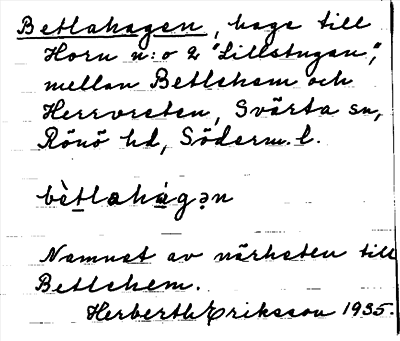 Betlahagen, hage till
Horn n:o 2 "Lillstugan",
mellan Betlehem och
Herrvreten, Svärta sn,
Rönö hd, Söderm. l.
bètlahágən
Namnet av närheten till
Betlehem.
Herberth Eriksson 1935.